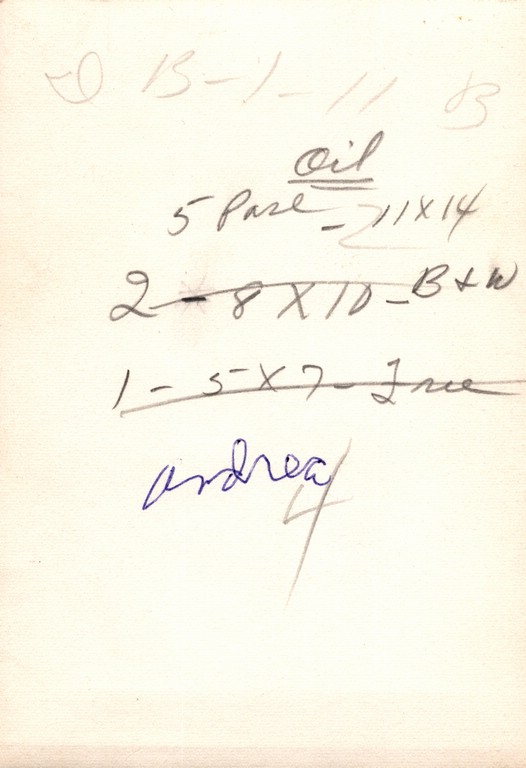 B-1-11 B
Oil
5 Pose - 11X14
2 - 8X10 - B+W
1 - 5X7 - Free
Andrea
4